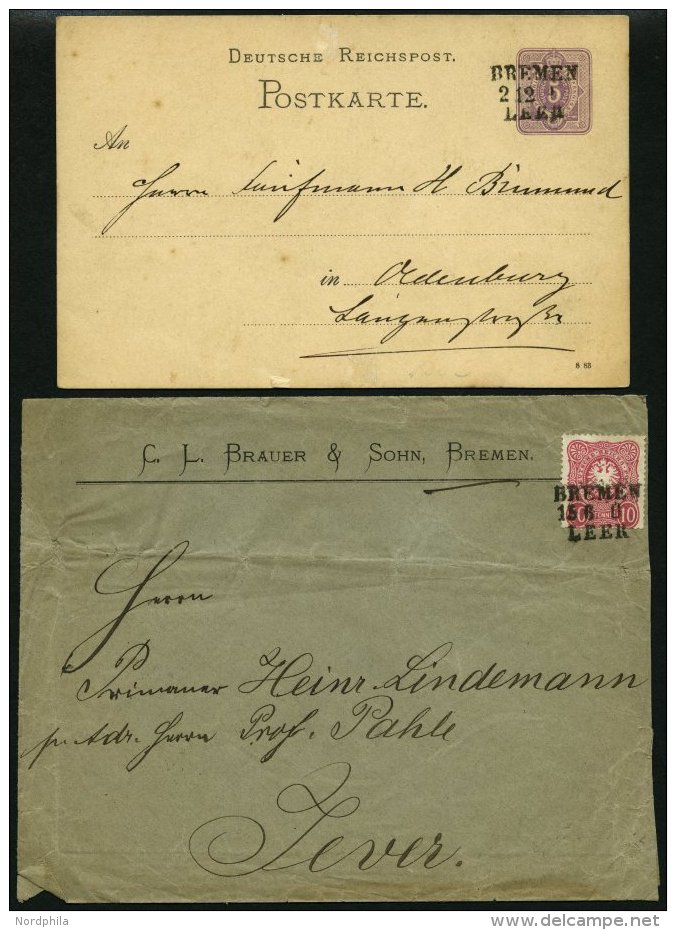 DEUTSCHE REICHSPOST.
POSTKARTE.
5
BREMEN
2 12 I
LEER
An
Herrn Kaufmann H
in Oldenburg
Langenstraße
8 83
C. L. BRAUER & SOHN, BREMEN.
10
BREMEN
15 6 II
LEER
Herrn
Primaner Heinr. Lindemann
pr. Adr. Herrn Prof. Pahle
Jever.
Nordphila
delcampe.net